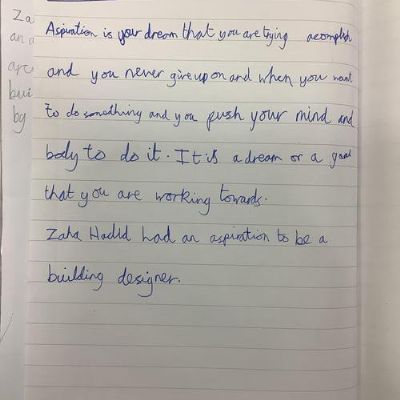 Za
an
are
bui
by
Aspiration is your dream that you are trying accomplish
and you never give up on and when you want
to do something and you push your mind and
body to do it. It is a dream or a goal
that you are working towards.
Zaha Hadid had an aspiration to be a
building designer.